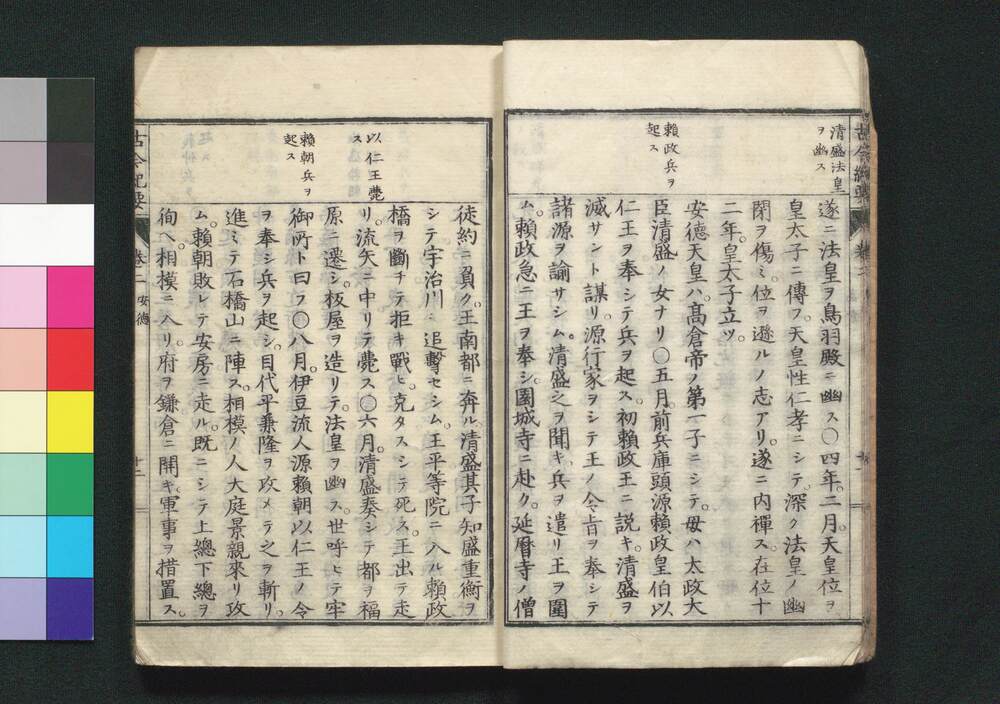 清盛法皇
ヲ幽ス
頼政兵ヲ
起ス
遂ニ法皇ヲ鳥羽殿ニ幽ス〇四年。二月。天皇位ヲ
皇太子ニ傳フ。天皇性仁孝ニシテ。深ク法皇ノ幽
閉ヲ傷ミ。位ヲ遜ルノ志アリ。遂ニ内禪ス。在位十
二年。皇太子立ツ。
安德天皇ハ。髙倉帝ノ第一子ニシテ。毋ハ太政大
臣清盛ノ女ナリ〇五月。前兵庫頭源賴政皇伯以
仁王ヲ奉シテ兵ヲ起ス。初賴政王ニ説キ。清盛ヲ
滅サント謀リ。源行家ヲシテ王ノ令旨ヲ奉シテ
諸源ヲ諭サシム。清盛之ヲ聞キ。兵ヲ遣リ王ヲ圍
ム。賴政急ニ王ヲ奉シ。園城寺ニ赴ク。延暦寺ノ僧
古今紀要
卷二 安德
十二
以仁王薨
ス
賴朝兵ヲ
起ス
徒約ニ負ク。王南都ニ奔ル。清盛其子知盛重衡ヲ
シテ宇治川ニ追擊セシム。王平等院ニ入ル賴政
橋ヲ斷チテ拒キ戰ヒ。克タスシテ死ス。王出テ走
リ。流矢ニ中リテ薨ス〇六月。清盛奏シテ都ヲ福
原ニ遷シ。板屋ヲ造リテ。法皇ヲ幽ス。世呼ヒテ牢
御所ト曰フ〇八月。伊豆流人源賴朝以仁王ノ令
ヲ奉シ兵ヲ起シ。目代平兼隆ヲ攻メテ之ヲ斬リ。
進ミテ石橋山ニ陣ス。相模ノ人大庭景親來リ攻
ム。賴朝敗レテ安房ニ走ル。既ニシテ上總下總ヲ
徇ヘ。相模ニ入リ府ヲ鎌倉ニ開キ。軍事ヲ措置ス。